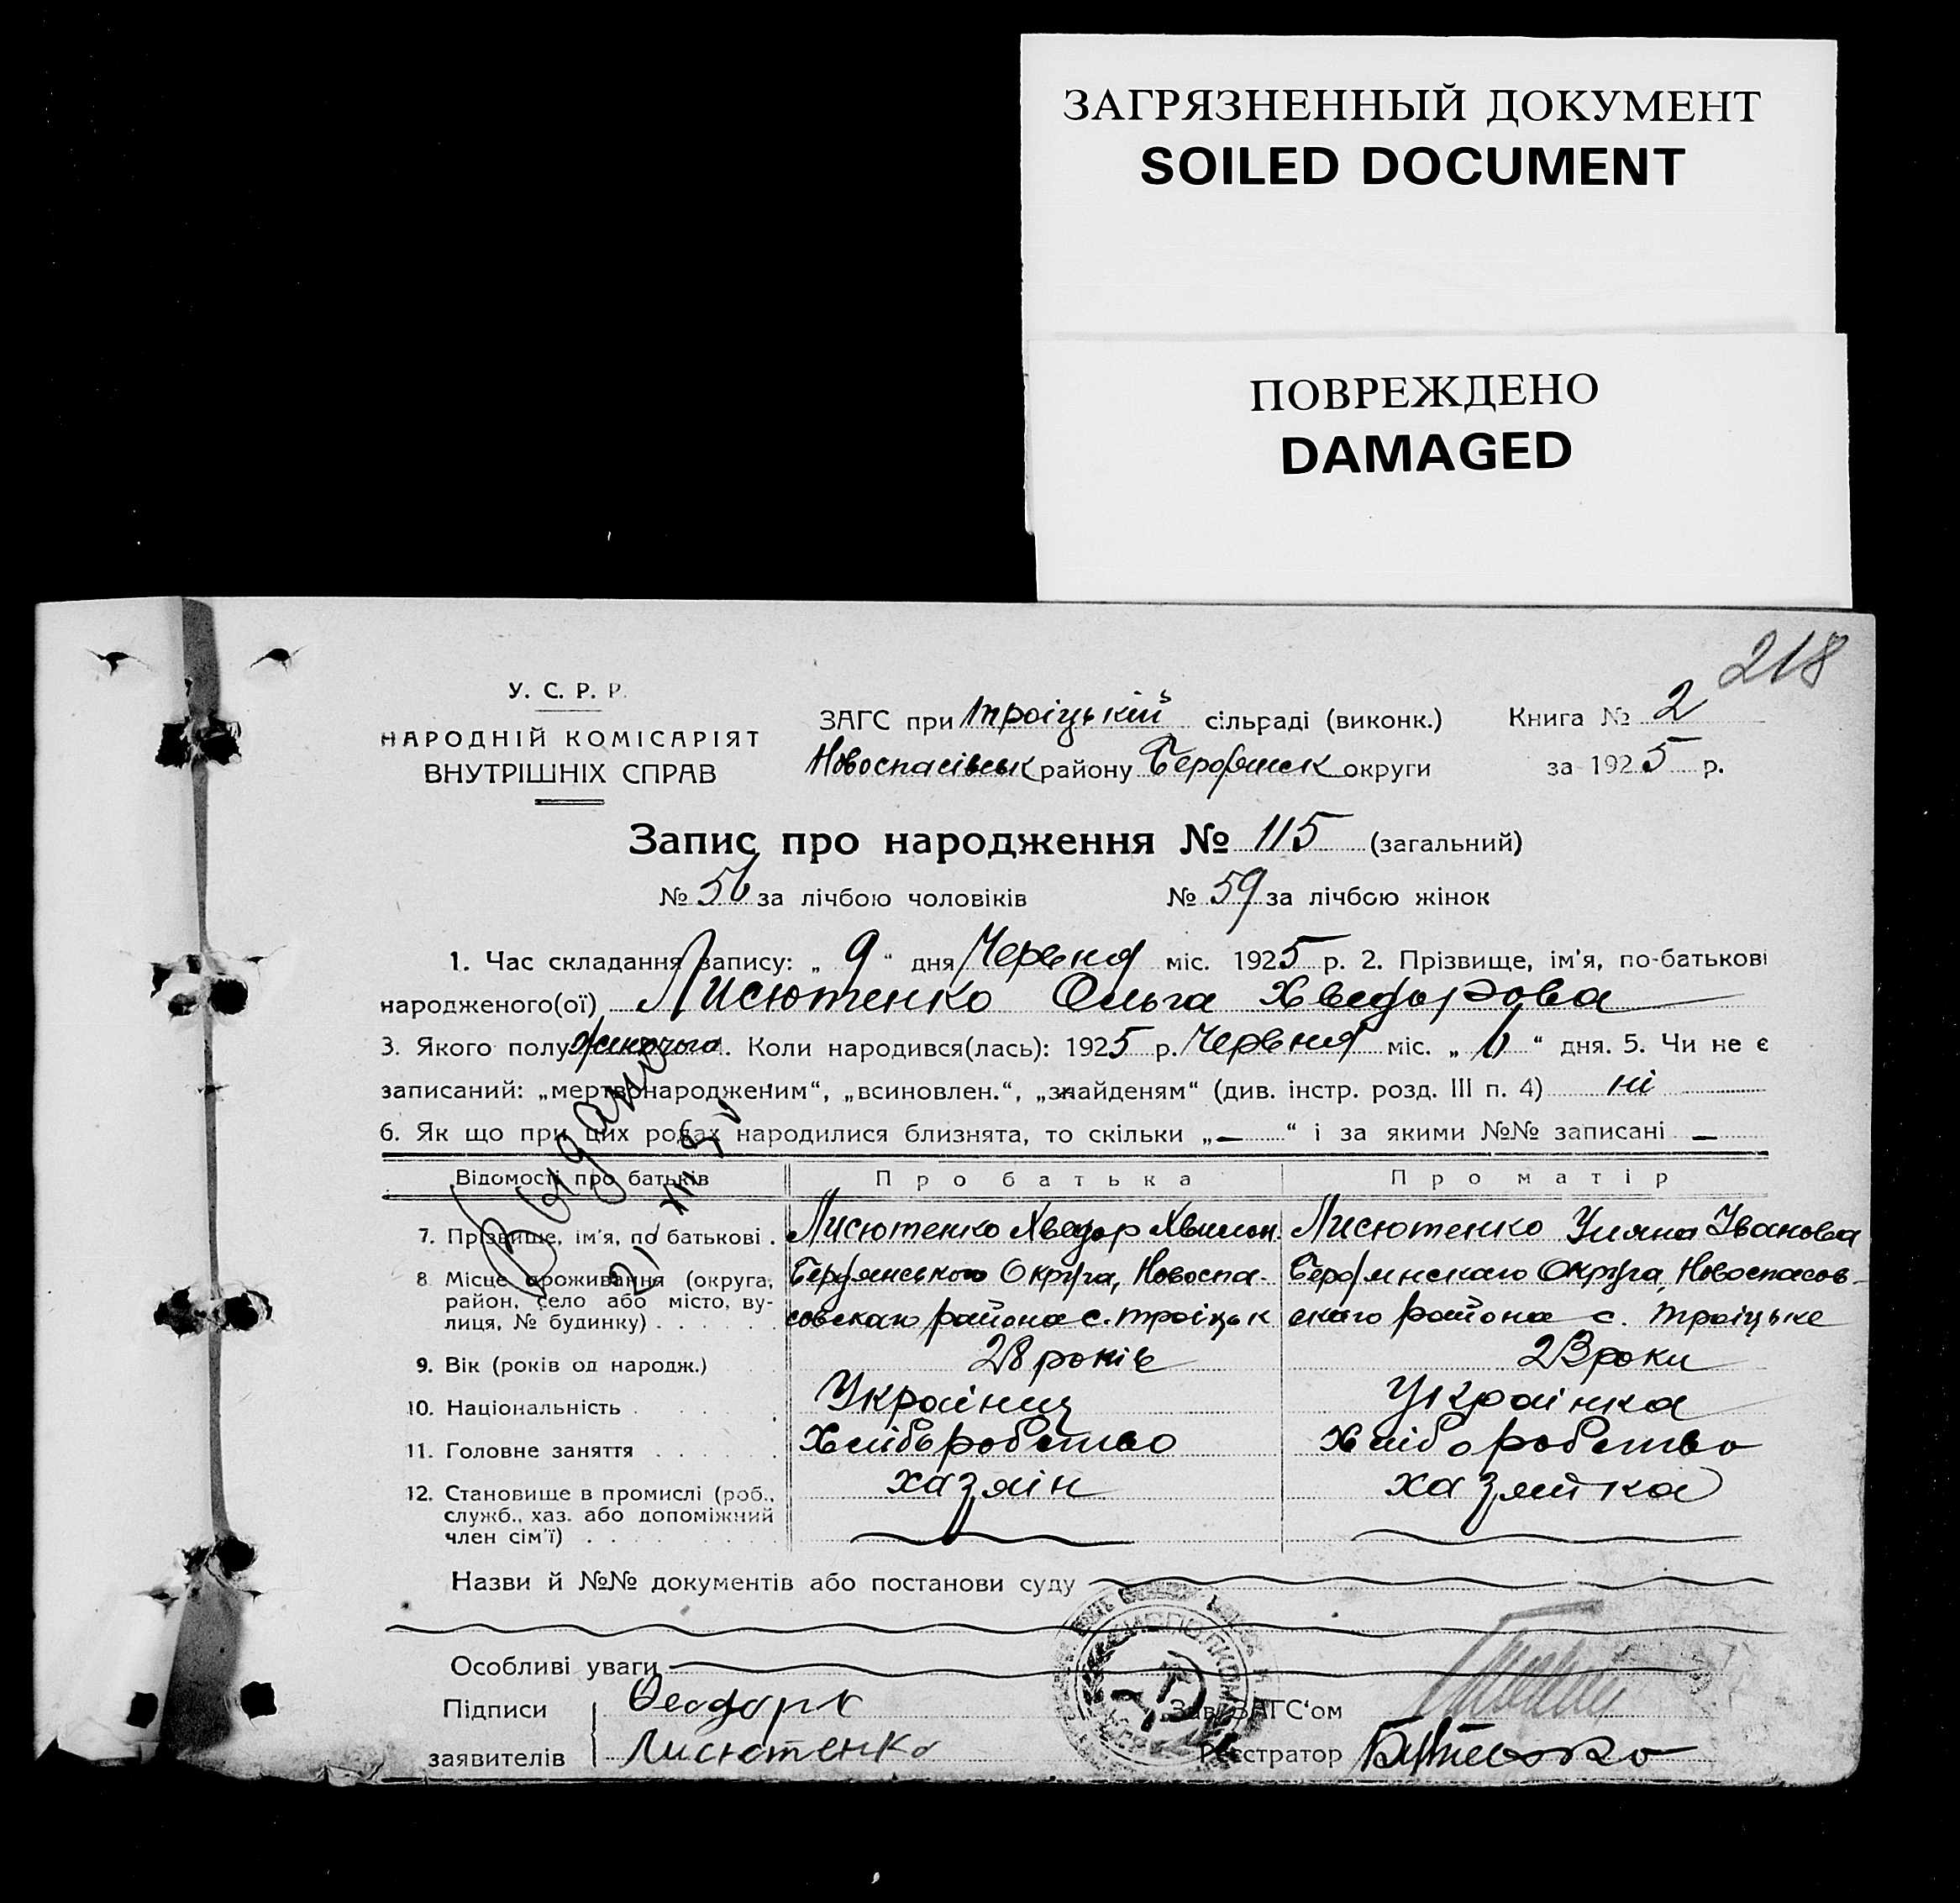 ЗАГРЯЗНЕННЫЙ ДОКУМЕНТ
SOILED DOCUMENT
ПОВРЕЖДЕНО
DAMAGED
218
У. С. Р. Р.
НАРОДНІЙ КОМІСАРІЯТ
ВНУТРІШНІХ СПРАВ
ЗАГС при Троіцькій сільраді (виконк.) Книга № 2
Новоспасівськ району Бердянськ округи за 1925 р.
Запис про народження № 115 (загальний)
№ 56 за лічбою чоловіків № 59 за лічбою жінок
1. Час складання запису: „ 9 “ дня Червня міс. 1925 р. 2. Прізвище, ім'я, по-батькові
народженого(ої) Лисютенко Ольга Хведорова
3. Якого полу жиночого. Коли народився(лась): 1925 р. Червня міс. „ 6 “ дня. 5. Чи не є
записаний: „мертвонародженим“, „всиновлен.“, „знайденям“ (див. інстр. розд. III п. 4) ні
6. Як що при цих родах народилися близнята, то скільки „ — “ і за якими №№ записані —
Видано
Відомості про батьків Про батька Про матір
7. Прізвище, ім'я, по батькові . Лисютенко Хведор Хвилон. Лисютенко Уляна Іванова
8 Місце проживання (округа, Бердянського Округа, Новоспа- Бердянскаго Округа, Новоспасов-
район, село або місто, ву- совскаго района с. Троіцьк скаго района с. Троіцьке
лиця, № будинку) . . . . . .
9. Вік (років од народж.) 28 років 23 роки
10. Національність . . . . . Українец Українка
11. Головне заняття . . . . . . Хліборобство хліборобство
12. Становище в промислі (роб., хазяін хазяйка
служб., хаз. або допоміжний
член сім'ї) . . . . . . . .
Назви й №№ документів або постанови суду
Особливі уваги
Підписи Феодоръ Зав. ЗАГС'ом
заявителів Лисютенко Реєстратор